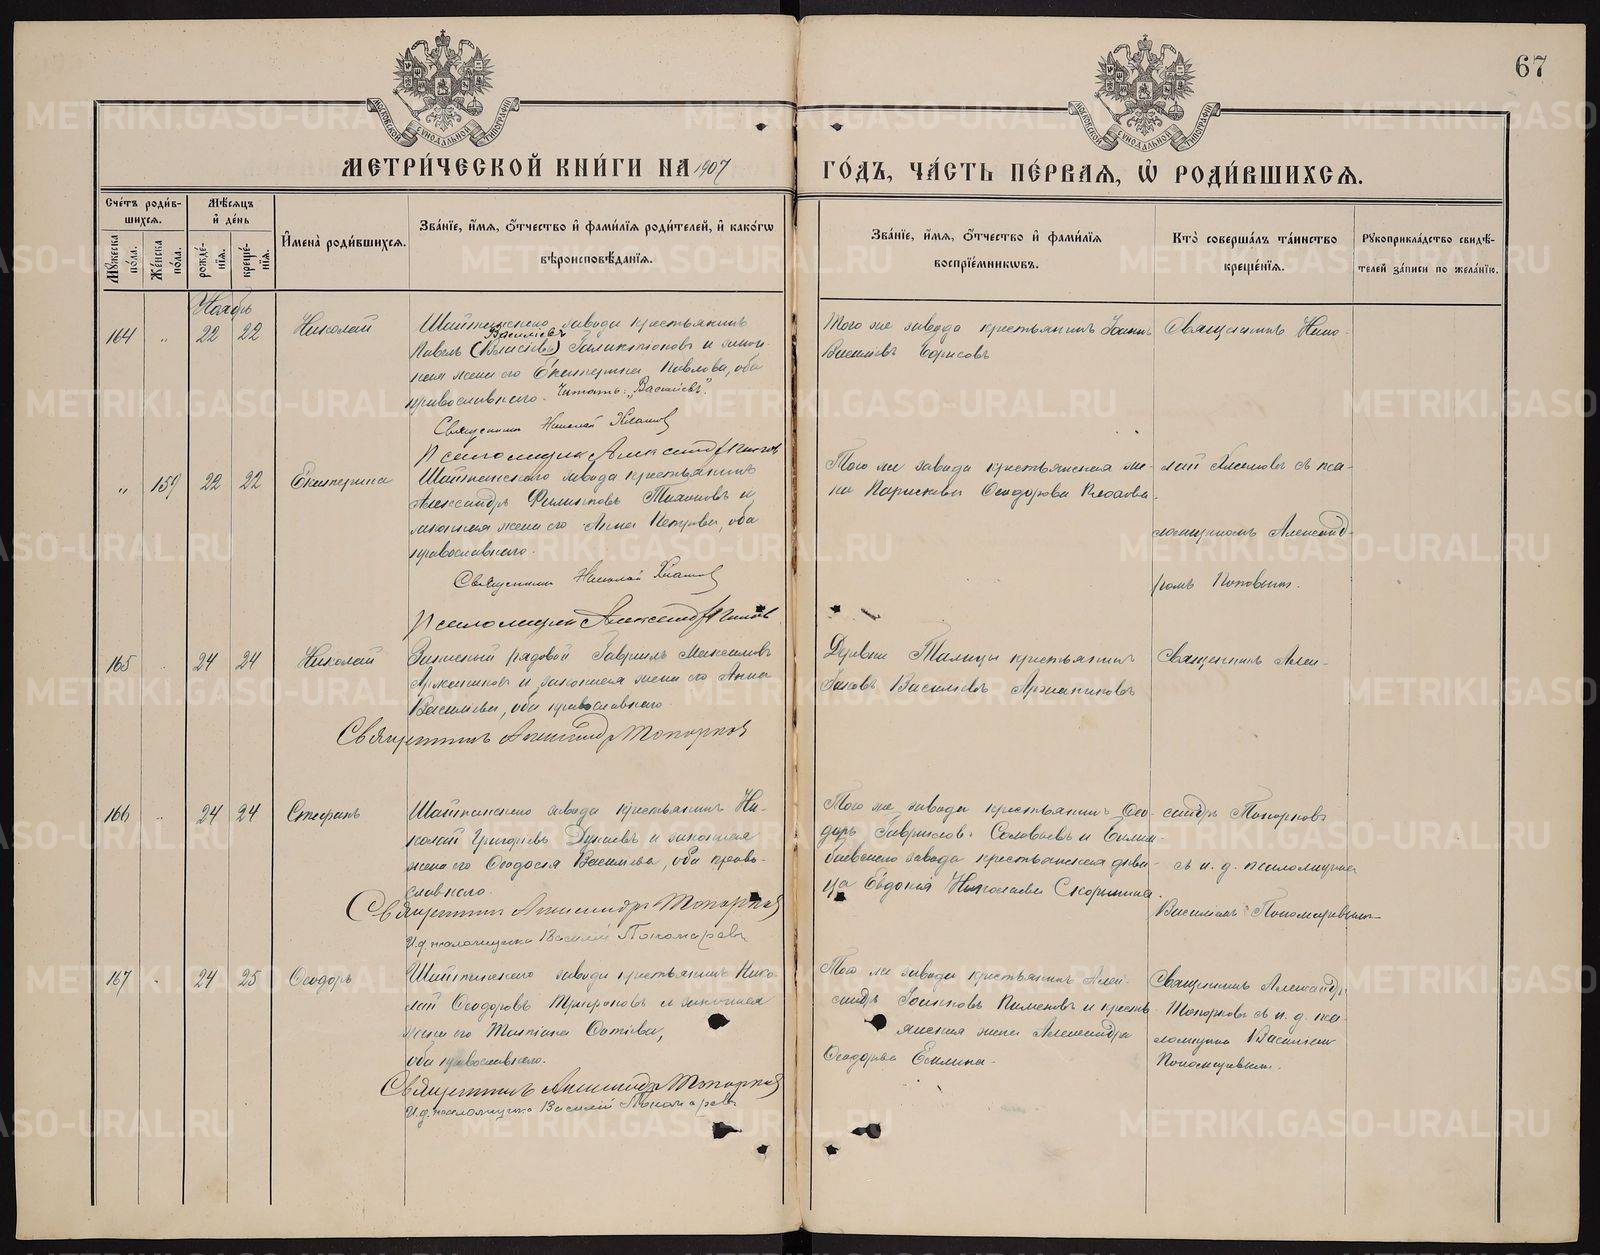 67
МЕТРИ́ЧЕСКОЙ КНИ́ГИ НА 1907 ГО́ДЪ, ЧА́СТЬ ПЕ́РВАѦ, Ѡ҆ РОДИ́ВШИХСѦ.
МОСКОВСКОЙ СѴНОДАЛЬНОЙ ТИПОГРАФІИ
МОСКОВСКОЙ СѴНОДАЛЬНОЙ ТИПОГРАФІИ
Сче́тъ роди́в-
шихсѧ.
Мꙋ́жеска по́ла.
Же́нска по́ла.
Мѣ́сѧцъ
и҆ де́нь
рожде́-
нїѧ.
креще́-
нїѧ.
И҆мена̀ роди́вшихсѧ.
Зва́нїе, и҆́мѧ, ѻ҆́тчество и҆ фами́лїѧ роди́телей, и҆ како́гѡ
вѣроисповѣ́данїѧ.
Зва́нїе, и҆́мѧ, ѻ҆́тчество и҆ фами́лїѧ
воспрїе́мникѡвъ.
Кто̀ соверша́лъ та́инство
креще́нїѧ.
Рꙋкоприкла́дство свидѣ́-
телей за́писи по жела́нїю.
Ноябрь
164 " 22 22 Николай
Шайтанскаго завода крестьянинъ
Васильевъ
Павелъ (Власіевъ) и закон-
ная жена его Екатерина Павлова, оба
православнаго. Читать: „Васильевъ".
Священникъ Николай
Псаломщикъ Александръ Поповъ
Того же завода крестьянинъ Іоаннъ
Васильевъ Борисовъ
Священникъ Нико-
" 159 22 22 Екатерина
Шайтанскаго завода крестьянинъ
Александръ Филиповъ Тихоновъ и
законная жена его Анна Петрова, оба
православнаго.
Священникъ Николай
Псаломщикъ Александръ Поповъ
Того же завода крестьянская же-
на Параскева Ѳеодорова
лай съ пса-
ломщикомъ Александ-
ромъ Поповымъ.
165 " 24 24 Николай
Запасный рядовой Гавріилъ Максимовъ
Аржанниковъ и законная жена его Анна
Васильева, оба православнаго.
Священникъ Александръ Топорковъ
Деревни Талицы крестьянинъ
Іаковъ Васильевъ Аржанниковъ
Священникъ Алек-
166 " 24 24 Стефанъ
Шайтанскаго завода крестьянинъ Ни-
колай Григорьевъ Дунаевъ и законная
жена его Ѳеодосія Васильева, оба право-
славнаго.
Священникъ Александръ Топорковъ
И. д. псаломщика Василій Пономаревъ
Того же завода крестьянинъ Ѳео-
доръ Гавриловъ Соловьевъ и Билим-
баевскаго завода крестьянская дѣви-
ца Евдокія Николаева Скорынина.
сандръ Топорковъ
съ и. д. псаломщика
Василіемъ Пономаревымъ
167 " 24 25 Ѳеодоръ
Шайтанскаго завода крестьянинъ Нико-
лай Ѳеодоровъ Трифоновъ и законная
жена его Татіана Фотіева,
оба православнаго.
Священникъ Александръ Топорковъ
И. д. псаломщика Василій Пономаревъ
Того же завода крестьянинъ Алек-
сандръ Іоанновъ Пименовъ и кресть-
янская жена Александра
Ѳеодорова Еклина.
Священникъ Александръ
Топорковъ съ и. д. пса-
ломщика Василіемъ
Пономаревымъ.
METRIKI.GASO-URAL.RU